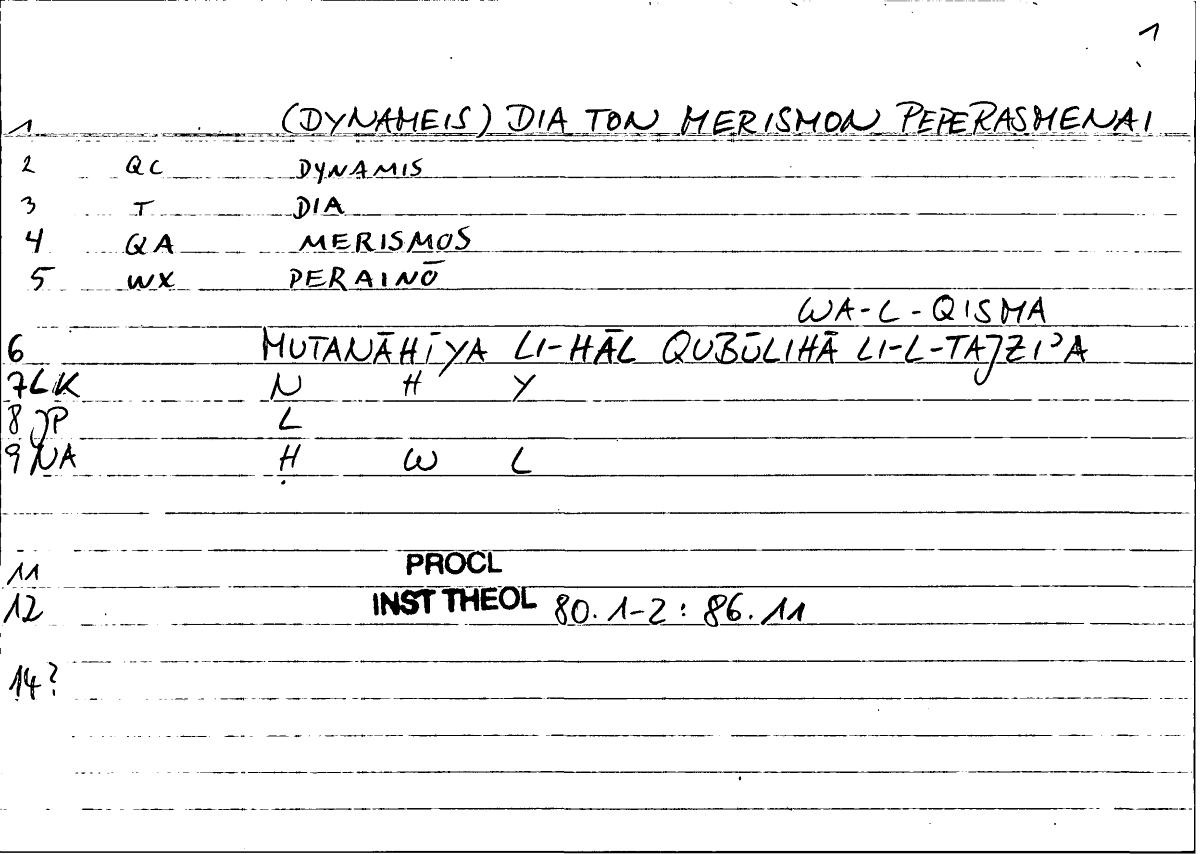 1
1 (DYNAMEIS) DIA TON MERISMON PEPERASMENAI
2 QC DYNAMIS
3 T DIA
4 QA MERISMOS
5 WX PERAINŌ
WA-L-QISMA
6 MUTANĀHĪYA LI-HĀL QUBŪLIHĀ LI-L-TAJZIʾA
7LK N H Y
8 JP L
9 NA Ḥ W L
11 PROCL
12 INST THEOL 80.1-2: 86.11
14?